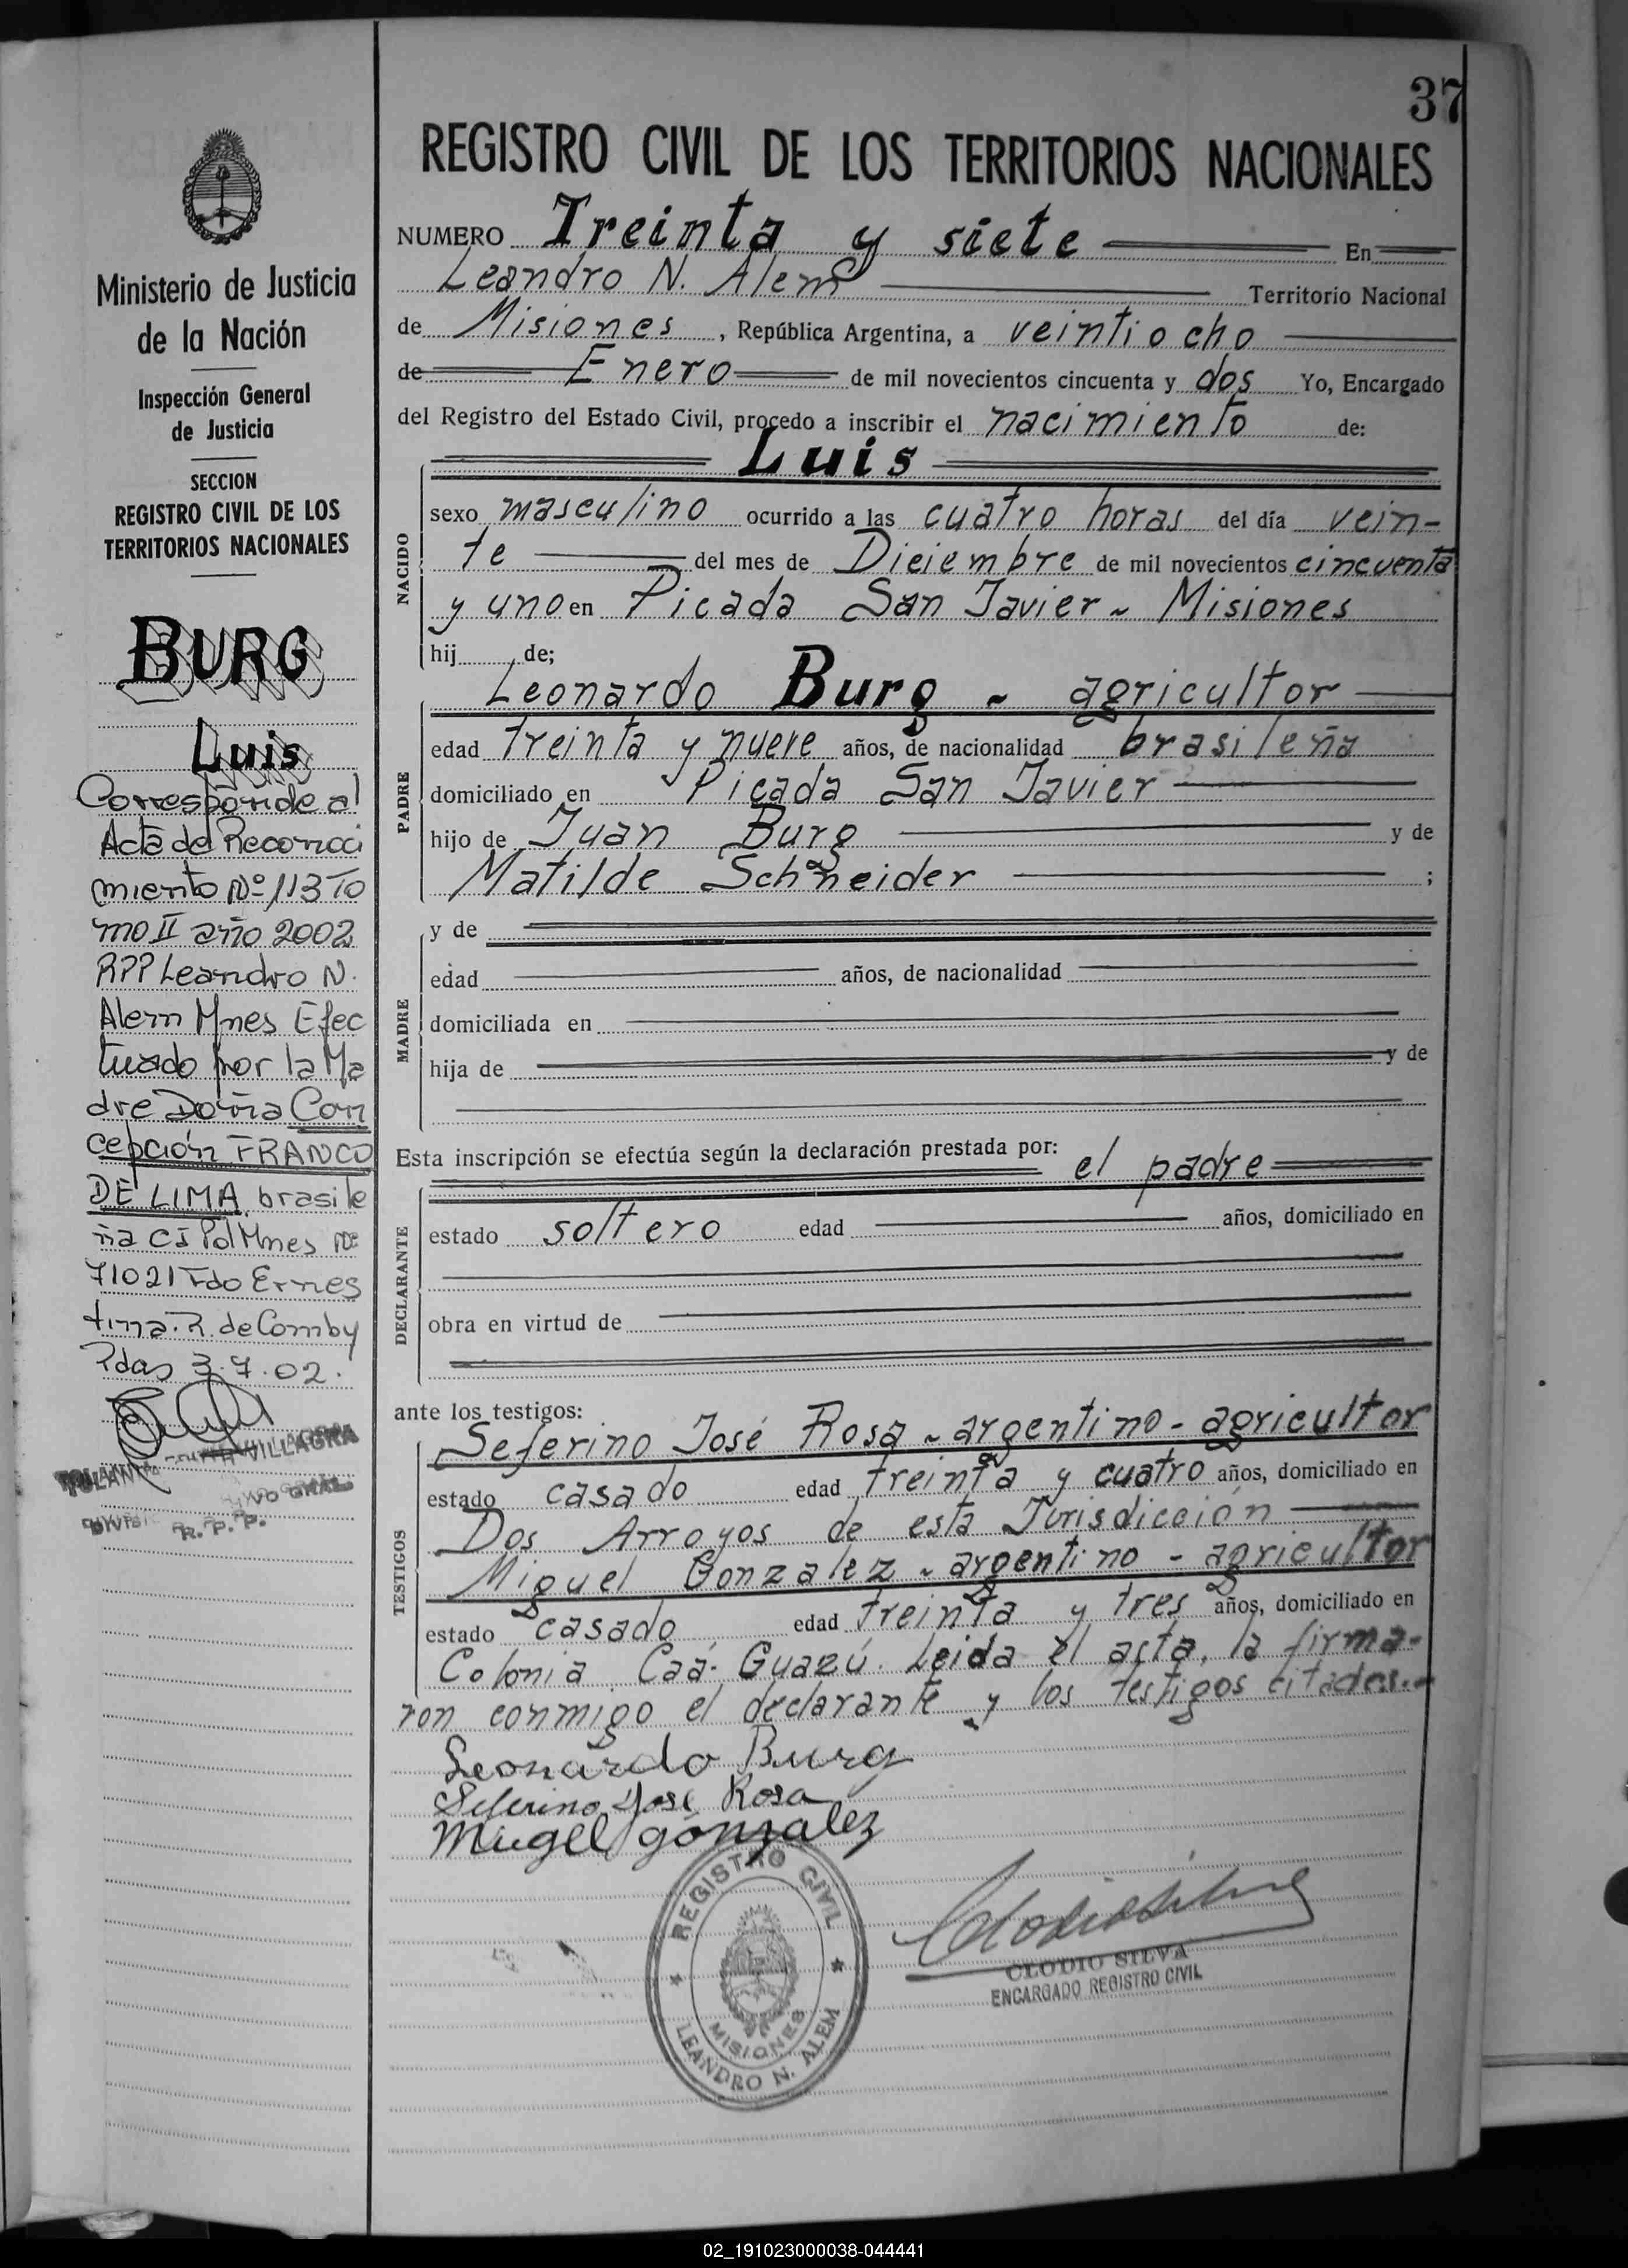 37
REGISTRO CIVIL DE LOS TERRITORIOS NACIONALES
NUMERO Treinta y siete En
Leandro N. Alem Territorio Nacional
de Misiones, República Argentina, a veintiocho
de Enero de mil novecientos cincuenta y dos Yo, Encargado
del Registro del Estado Civil, procedo a inscribir el nacimiento de:
Luis
NACIDO
sexo masculino ocurrido a las cuatro horas del día vein-
te del mes de Diciembre de mil novecientos cincuenta
y uno en Picada San Javier ~ Misiones
hij de;
Leonardo Burg ~ agricultor
PADRE
edad treinta y nueve años, de nacionalidad brasileña
domiciliado en Picada San Javier
hijo de Juan Burg y de
Matilde Schneider ;
MADRE
y de
edad años, de nacionalidad
domiciliada en
hija de y de
Esta inscripción se efectúa según la declaración prestada por: el padre
DECLARANTE
estado soltero edad años, domiciliado en
obra en virtud de
ante los testigos:
TESTIGOS
Seferino José Rosa ~ argentino - agricultor
estado casado edad treinta y cuatro años, domiciliado en
Dos Arroyos de esta Jurisdicción
Miguel Gonzalez ~ argentino - agricultor
estado casado edad treinta y tres años, domiciliado en
Colonia Caá-Guazú. Leida el acta, la firma-
ron conmigo el declarante y los testigos citados.-
Leonardo Burg
Seferino José Rosa
Mugel gonzalez
REGISTRO CIVIL
MISIONES
LEANDRO N. ALEM
CLODIO SILVA
ENCARGADO REGISTRO CIVIL
Ministerio de Justicia
de la Nación
Inspección General
de Justicia
SECCION
REGISTRO CIVIL DE LOS
TERRITORIOS NACIONALES
BURG
Luis
Corresponde al
Acta de Reconoci
miento Nº 113 To
mo II año 2002
RPP Leandro N.
Alem Mnes Efec
tuado por la Ma
dre Doña Con
cepción FRANCO
DE LIMA brasile
ña CI Pol Mnes Nº
71021 Fdo Ernes
tina. R. de Comby
Pdas 3.7.02.
VILLAGRA
R. P. P.
02_191023000038-044441